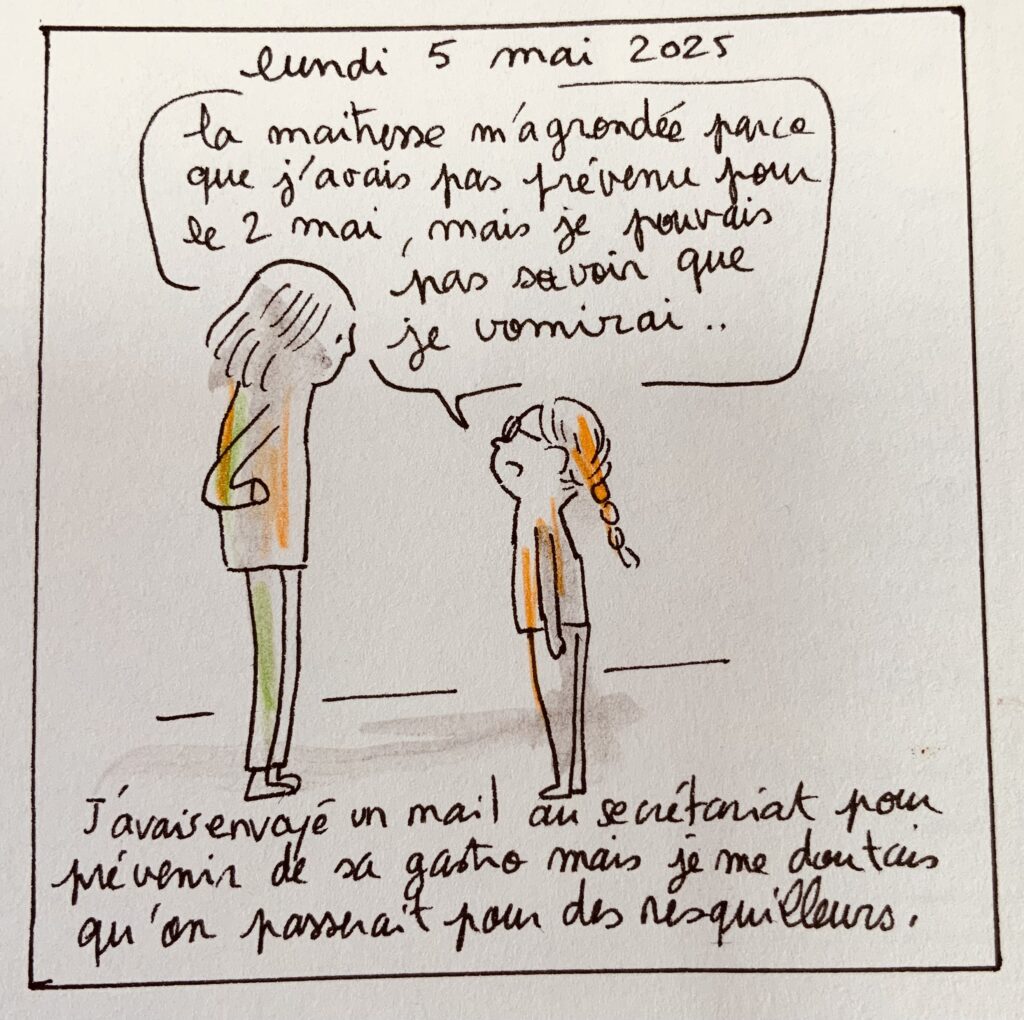 lundi 5 mai 2025
la maitresse m'a grondée parce
que j'avais pas prévenu pour
le 2 mai, mais je pouvais
pas savoir que
je vomirai..
J'avais envoyé un mail au secrétariat pour
prévenir de sa gastro mais je me doutais
qu'on passerait pour des resquilleurs.